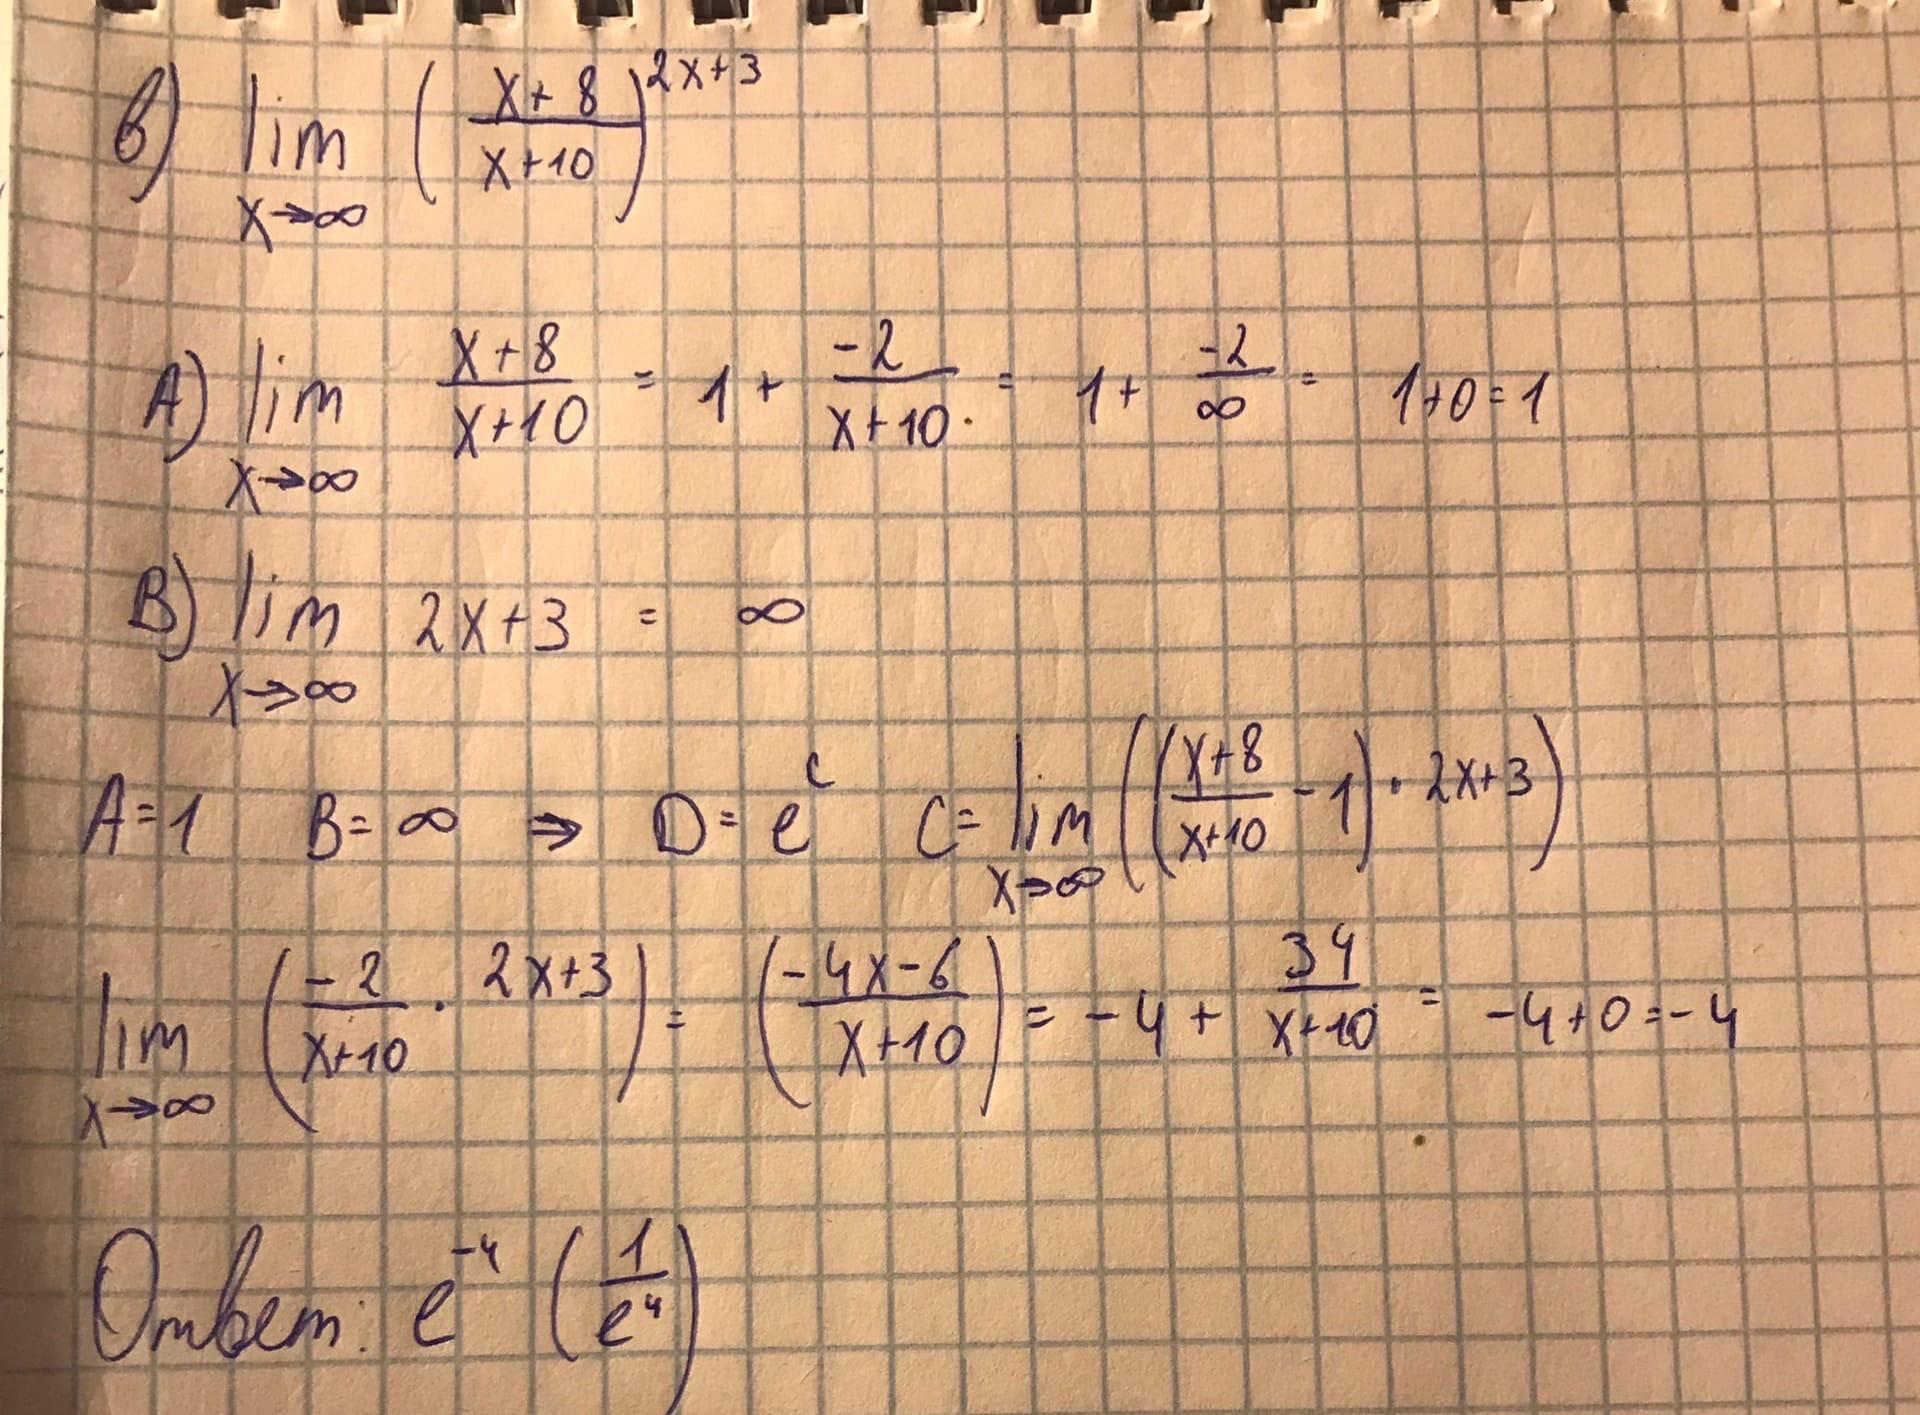 в) lim x→∞ ((x+8)/(x+10))^(2x+3)
A) lim x→∞ (x+8)/(x+10) = 1 + (-2)/(x+10) = 1 + (-2)/∞ = 1+0=1
B) lim x→∞ 2x+3 = ∞
A=1 B=∞ ⇒ D=e^c C= lim x→∞ (((x+8)/(x+10) - 1) · 2x+3)
lim x→∞ ((-2)/(x+10) · 2x+3) = ((-4x-6)/(x+10)) = -4 + 34/(x+10) = -4+0=-4
Ответ: e^-4 (1/e^4)